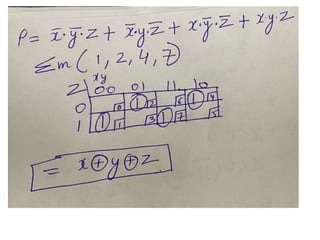 P = x̄·ȳ·z + x̄·y·z̄ + x·ȳ·z̄ + x·y·z
Σm(1, 2, 4, 7)
xy
z 00 01 11 10
0 0 1 2 6 1 4
1 1 1 3 1 7 5
= x⊕y⊕z